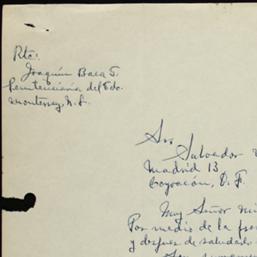 Rte:
Joaquín Baca S.
Penitenciaría del Edo.
Monterrey, N. L.
Sr.
Salvador
Madrid 13
Coyoacán, D. F.
Muy Señor mi
Por medio de la pre
y despues de saludarlo